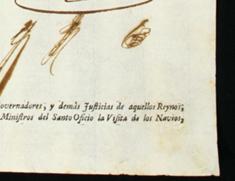 overnadores, y demàs Justicias de aquellos Reynos,
Ministros del Santo Oficio la Visita de los Navios,